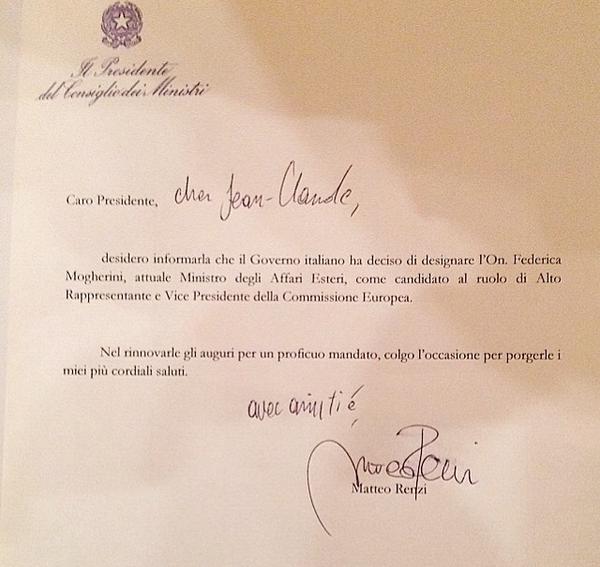 Il Presidente
del Consiglio dei Ministri
Caro Presidente, cher Jean-Claude,
desidero informarla che il Governo italiano ha deciso di designare l'On. Federica
Mogherini, attuale Ministro degli Affari Esteri, come candidato al ruolo di Alto
Rappresentante e Vice Presidente della Commissione Europea.
Nel rinnovarle gli auguri per un proficuo mandato, colgo l'occasione per porgerle i
miei più cordiali saluti.
avec amitié,
Matteo Renzi